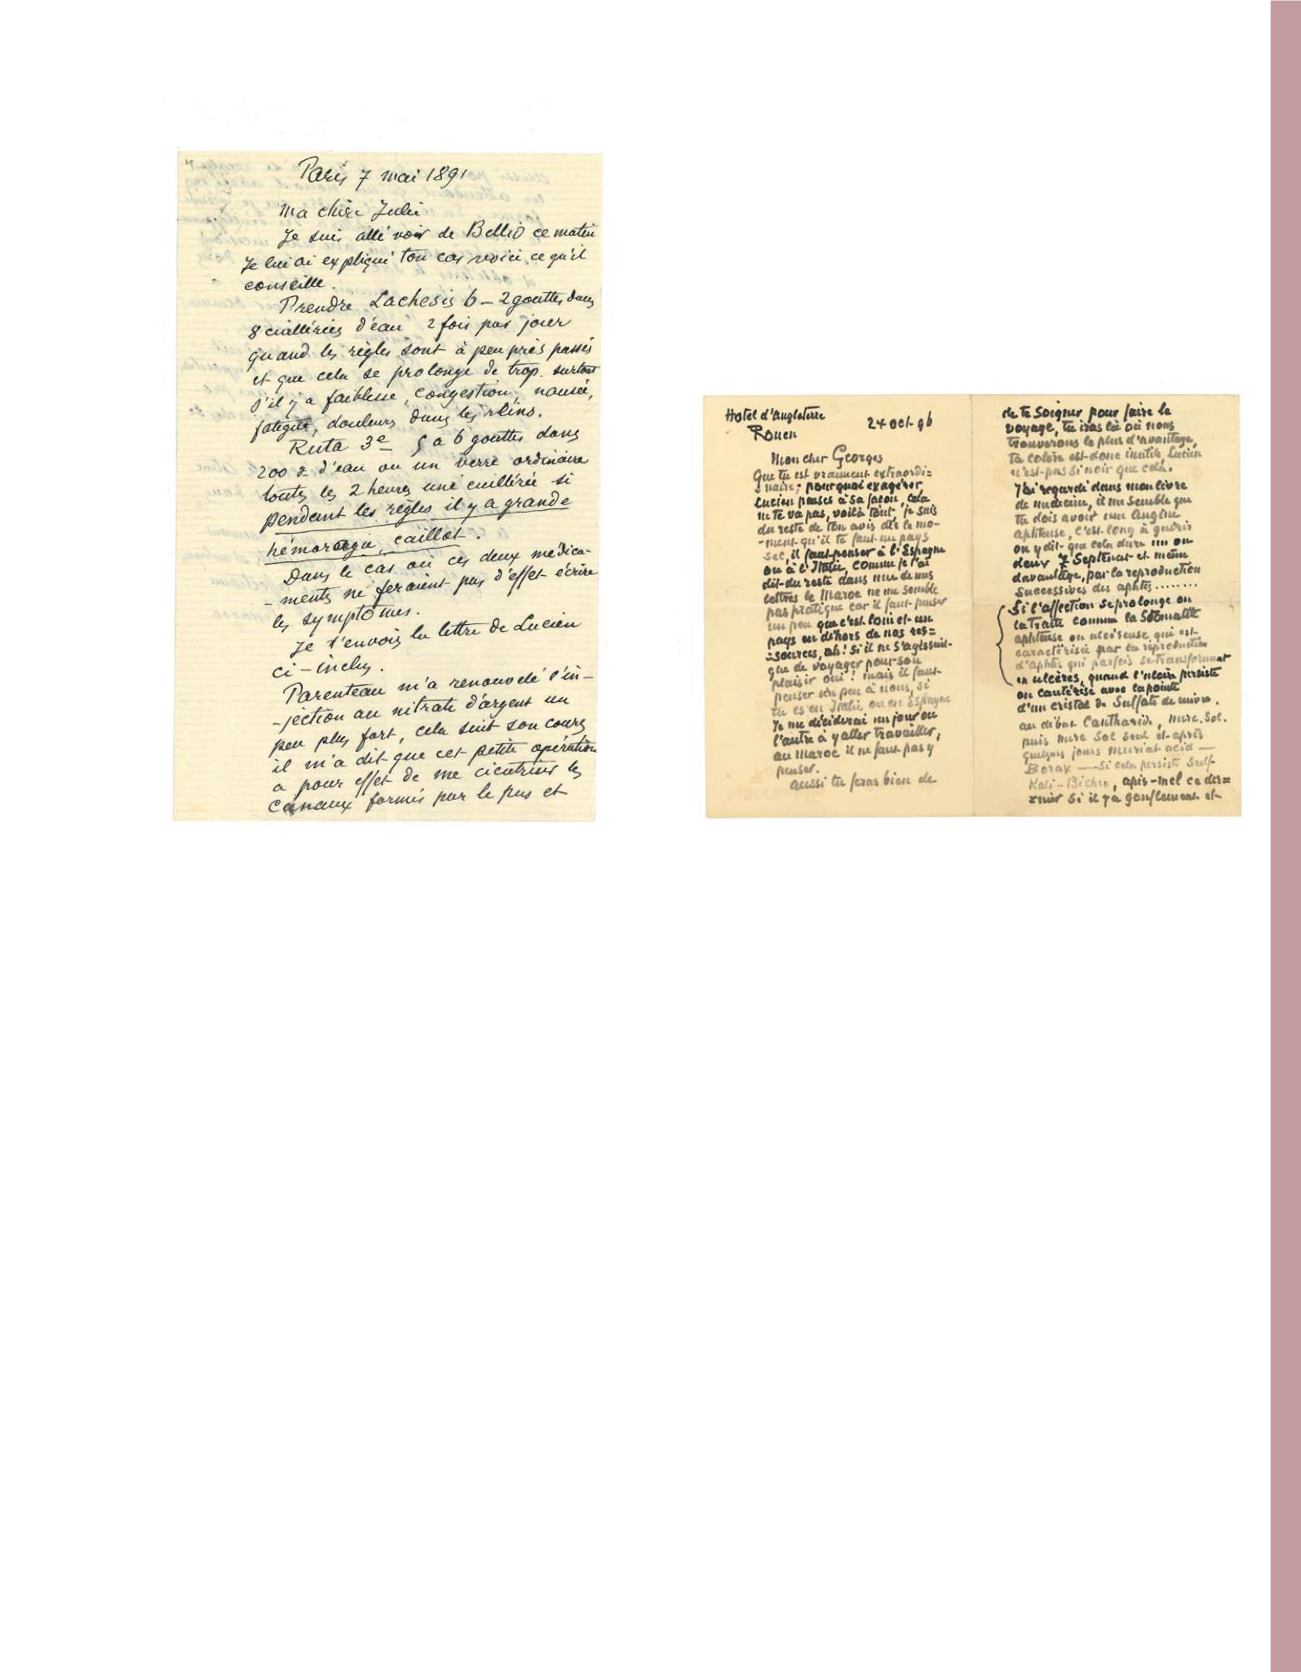 Paris 7 mai 1891
Ma chère Julie
Je suis allé voir de Bellio ce matin
Je lui ai expliqué ton cas voici ce qu'il
conseille.
Prendre Lachesis 6 – 2 gouttes dans
8 cuillérées d'eau 2 fois par jour
quand les règles sont à peu près passés
et que cela se prolonge de trop. surtout
s'il y a faiblesse, congestion, nausée,
fatigue, douleurs dans les reins.
Ruta 3e 5 a 6 gouttes dans
200 g d'eau ou un verre ordinaire
toutes les 2 heures une cuillérée si
pendant les règles il y a grande
hémoragie, caillot.
Dans le cas où ces deux médica-
-ments ne feraient pas d'effet écrire
les symptômes.
Je t'envois la lettre de Lucien
ci-inclus.
Parenteau m'a renouvelé l'in-
-jection au nitrate d'argent un
peu plus fort, cela suit son cours
il m'a dit que cet petite opération
a pour effet de me cicatriser les
canaux formés par le pus et
Hotel d'Angleterre
Rouen
24 oct. 96
Mon cher Georges
Que tu est vraiment extraordi=
=naire; pourquoi exagérer
Lucien penses à sa façon, cela
ne te va pas, voilà tout, je suis
du reste de ton avis dès le mo-
-ment qu'il te faut un pays
sec, il faut penser à l'Espagne
ou à l'Italie, comme je l'ai
dit du reste dans une de mes
lettres le Maroc ne me semble
pas pratique car il faut penser
un peu que c'est loin et un
pays en dehors de nos res=
=sources, ah! si il ne s'agissait
que de voyager pour son
plaisir oui! mais il faut
penser un peu à nous, si
tu es en Italie ou en Espagne
je me déciderai un jour ou
l'autre à y aller travailler,
au Maroc il ne faut pas y
penser.
aussi tu feras bien de
de te soigner pour faire le
voyage, tu iras là où nous
trouverons le plus d'avantage,
ta colère est donc inutile, Lucien
n'est pas si noir que cela.
J'ai regardé dans mon livre
de médecine, il me semble que
tu dois avoir une angine
aphteuse, c'est long à guérir
on y dit que cela dure un ou
deux 7 Septenat et même
davantage, par la reproduction
successives des aphtes........
Si l'affection se prolonge on
la traite comme la Stomatite
aphteuse ou ulcéreuse qui est
caractérisée par la reproduction
d'aphtes qui parfois se transforment
en ulcères, quand l'ulcère persiste
on cautérise avec la pointe
d'un cristal de Sulfate de cuivre.
au début Cantharis, Merc. Sol.
puis merc Sol seul et après
quelques jours muriat acid —
Borax — Si cela persiste Sulf
Kali-Bichro, apis-mel ce der=
=nier si il y a gonflement et